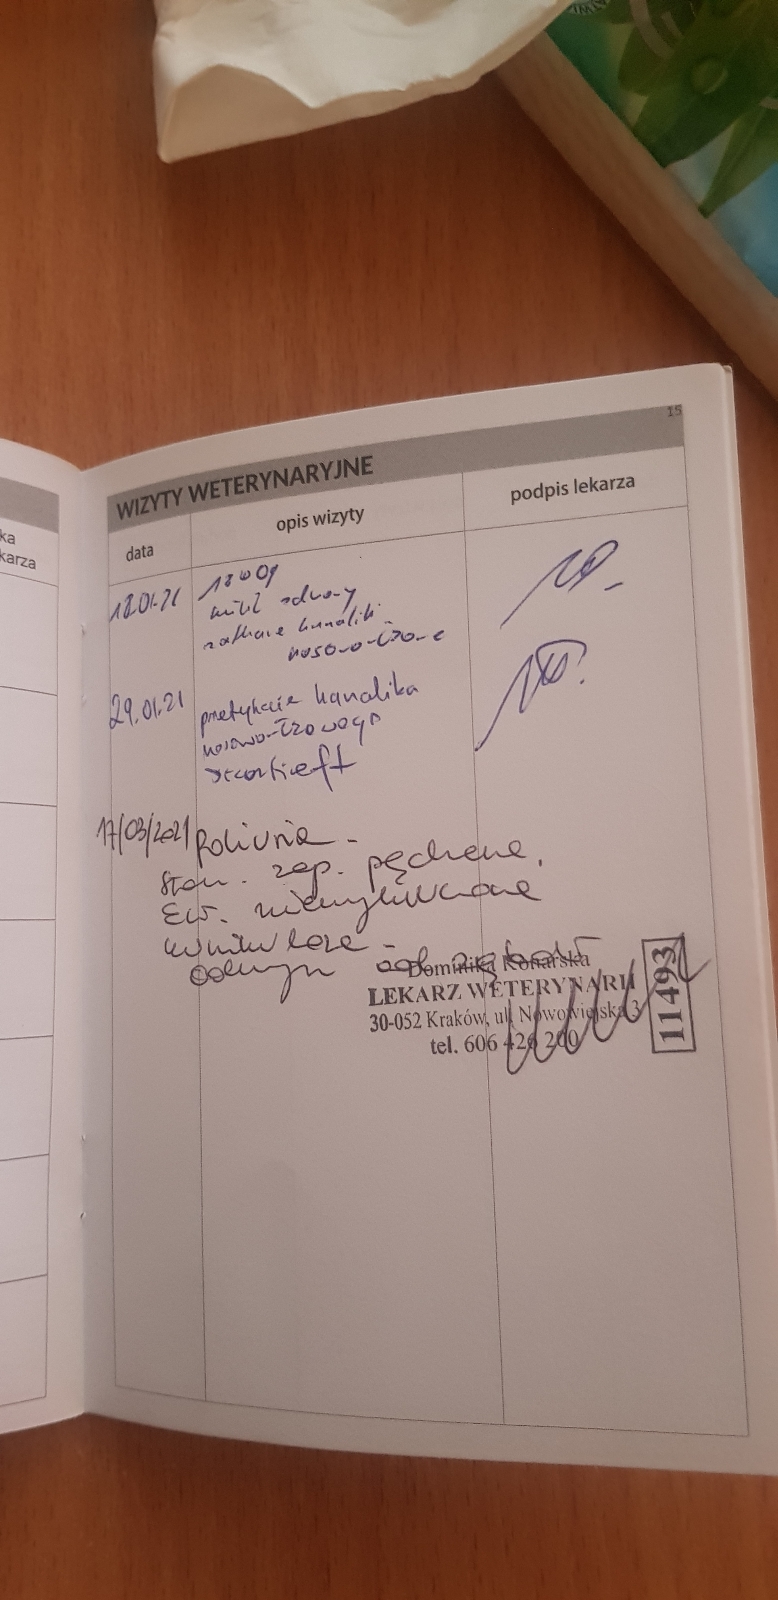 15
ka
karza
WIZYTY WETERYNARYJNE
data
opis wizyty
podpis lekarza
18.01.21
1800g
zdrowy
zatkane kanaliki
nosowo-łzowe
29.01.21
przetykanie kanalika
nosowo-łzowego
17/03/2021
Poliuria -
Stan. zap. pęcherza.
Ew. niewykluczone
Dominika Konarska
LEKARZ WETERYNARII
30-052 Kraków, ul. Nowowiejska 3
tel. 606 426 200
11493